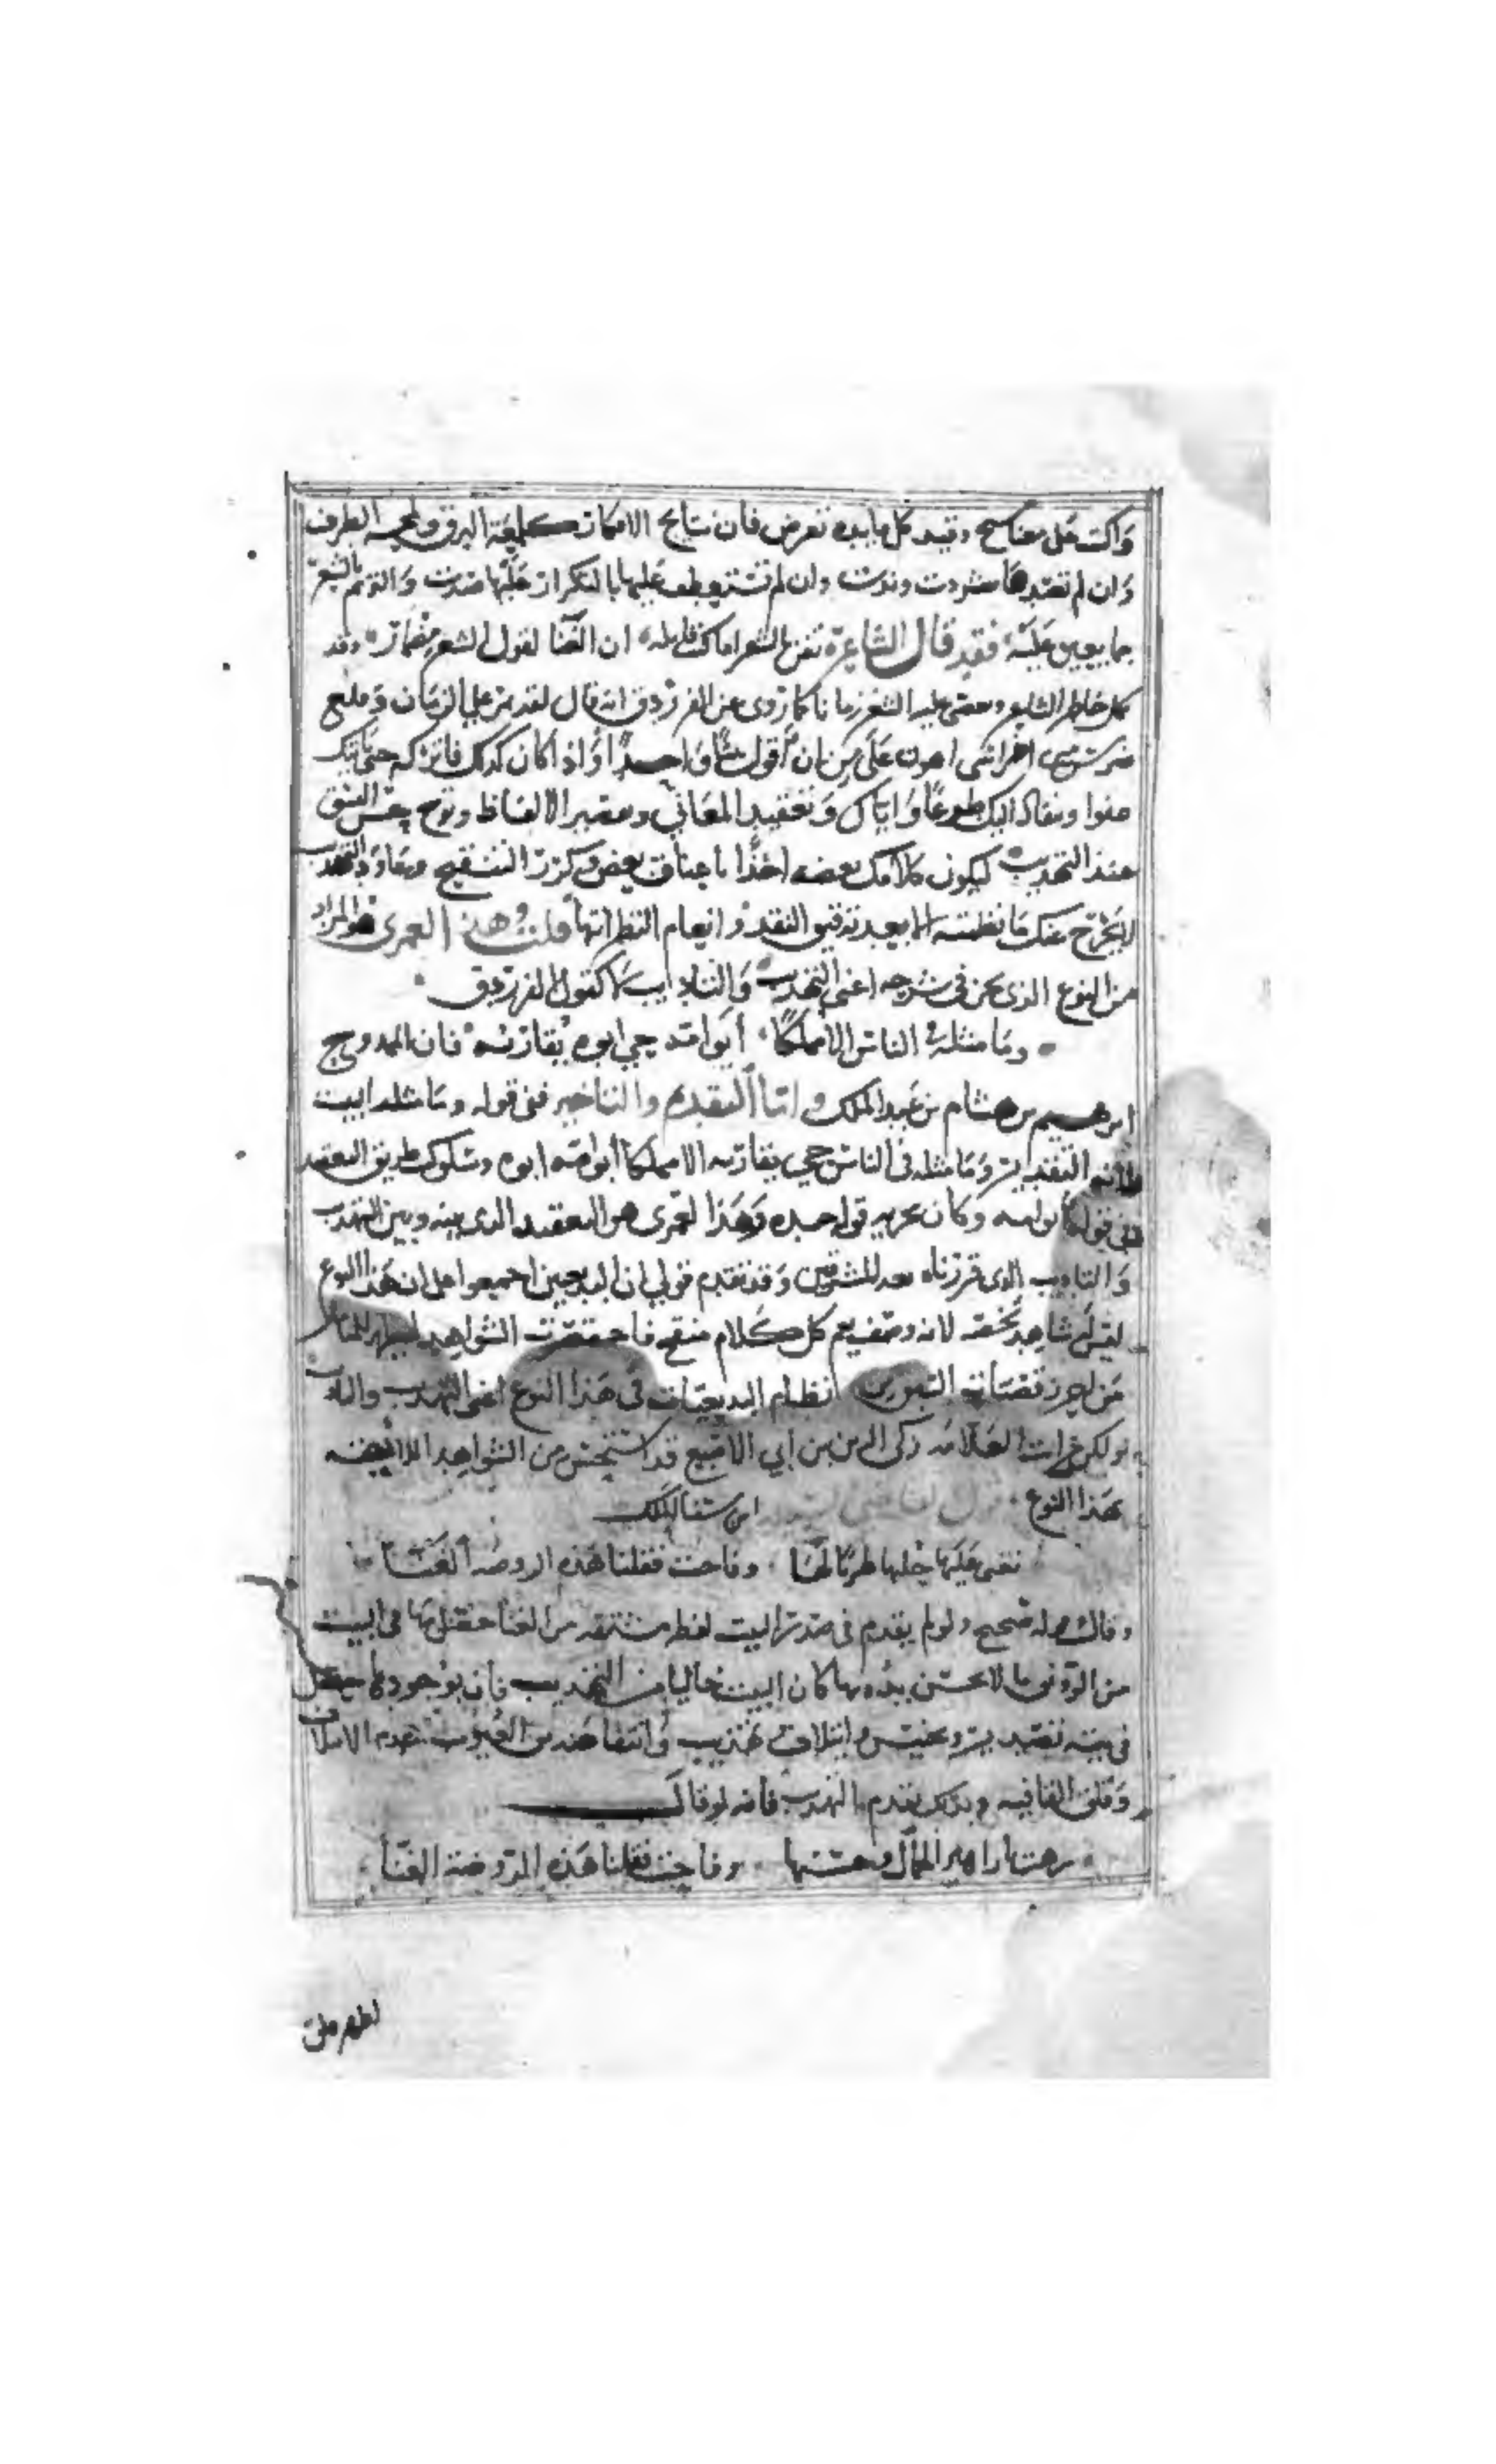 واكتب كل معنا يسنح وقيد كل فايده تعرض فان نتايج الافكار كلمعة البرق ولمحة الطرف
وان لم تقيدها شردت وندت وان لم تستعطف عليها بالتكرار عليها صدت والترنم بالشعر
مما يعين عليه فقد قال الشاعر تغن بالشعر اما كنت قايله ان الغنا لقول الشعر مضمار وقد
يكل خاطر الشاعر ويعصى عليه الشعر زمانا كما روى عن الفرزدق انه قال لقد يمر علي الزمان وقلع
ضرس من اضراسي اهون علي من ان اقول بيتا واحدا واذا كان كذلك فاتركه حتى ياتيك
عفوا وينقاد اليك طوعا واياك وتعقيد المعاني وتقعير الالفاظ وتوخ حسن النسق
عند التهذيب ليكون كلامك بعضه اخذا باعناق بعض وكرر التنقيح وعاود التهذيب
لا يخرج عنك ما نظمته الا بعد تدقيق النقد وانعام النظر انتها قلت وهذا لعمرى هو المراد
من النوع الذى نحن فى شرحه اعنى التهذيب والتاديب لا كقول الفرزدق
وما مثله في الناس الا مملكا ابو امه حي ابوه يقاربه فان الممدوح
ابرهيم بن هشام بن عبد الملك واما التقديم والتاخير ففى قوله وما مثله البيت
لانه التقدير وما مثله فى الناس حي يقاربه الا مملكا ابو امه ابوه وسلوك طريق التعقيد
فى قوله ابو امه وكان يجزيه قوله جده وهذا لعمرى هو التعقيد الذى بينه وبين التهذيب
والتاديب الذى قررناه بعد المشرقين وقد تقدم قولي ان البديعين اجمعوا على ان هذا النوع
ليس له شاهد يخصه لانه وصف يعم كل كلام منقح فاحتضرت الشواهد ليظهر للمتامل
من احرز قصبات السبق من نظام البديعيات فى هذا النوع اعنى التهذيب والتاديب
ولكن رايت العلامه زكى الدين بن ابي الاصبع قد استحسن من الشواهد اللايقه
بهذا النوع قول القاضى السعيد ابن سنا الملك
تغنى عليها حليها طربا لها وفاحت فقلنا هذه الروضه الغنا
وقال قوله صحيح ولو لم يقدم فى صدر البيت لفظه مشتقه من الغنا حصل بها فى البيت
من الرونق ما لا يحسن بدونها كان البيت خاليا من التهذيب فان بوجودها حصل
فى بيته تصدير وتجنيس وايتلاف تهذيب وانتفا عنه من العيوب عدم الايتلاف
وقلق القافيه وبذلك يقدم بالتهذيب فانه لو قال
زهت بازاهير الجمال وحسنها وفاحت فقلنا هذه الروضة الغنا
لظهر على